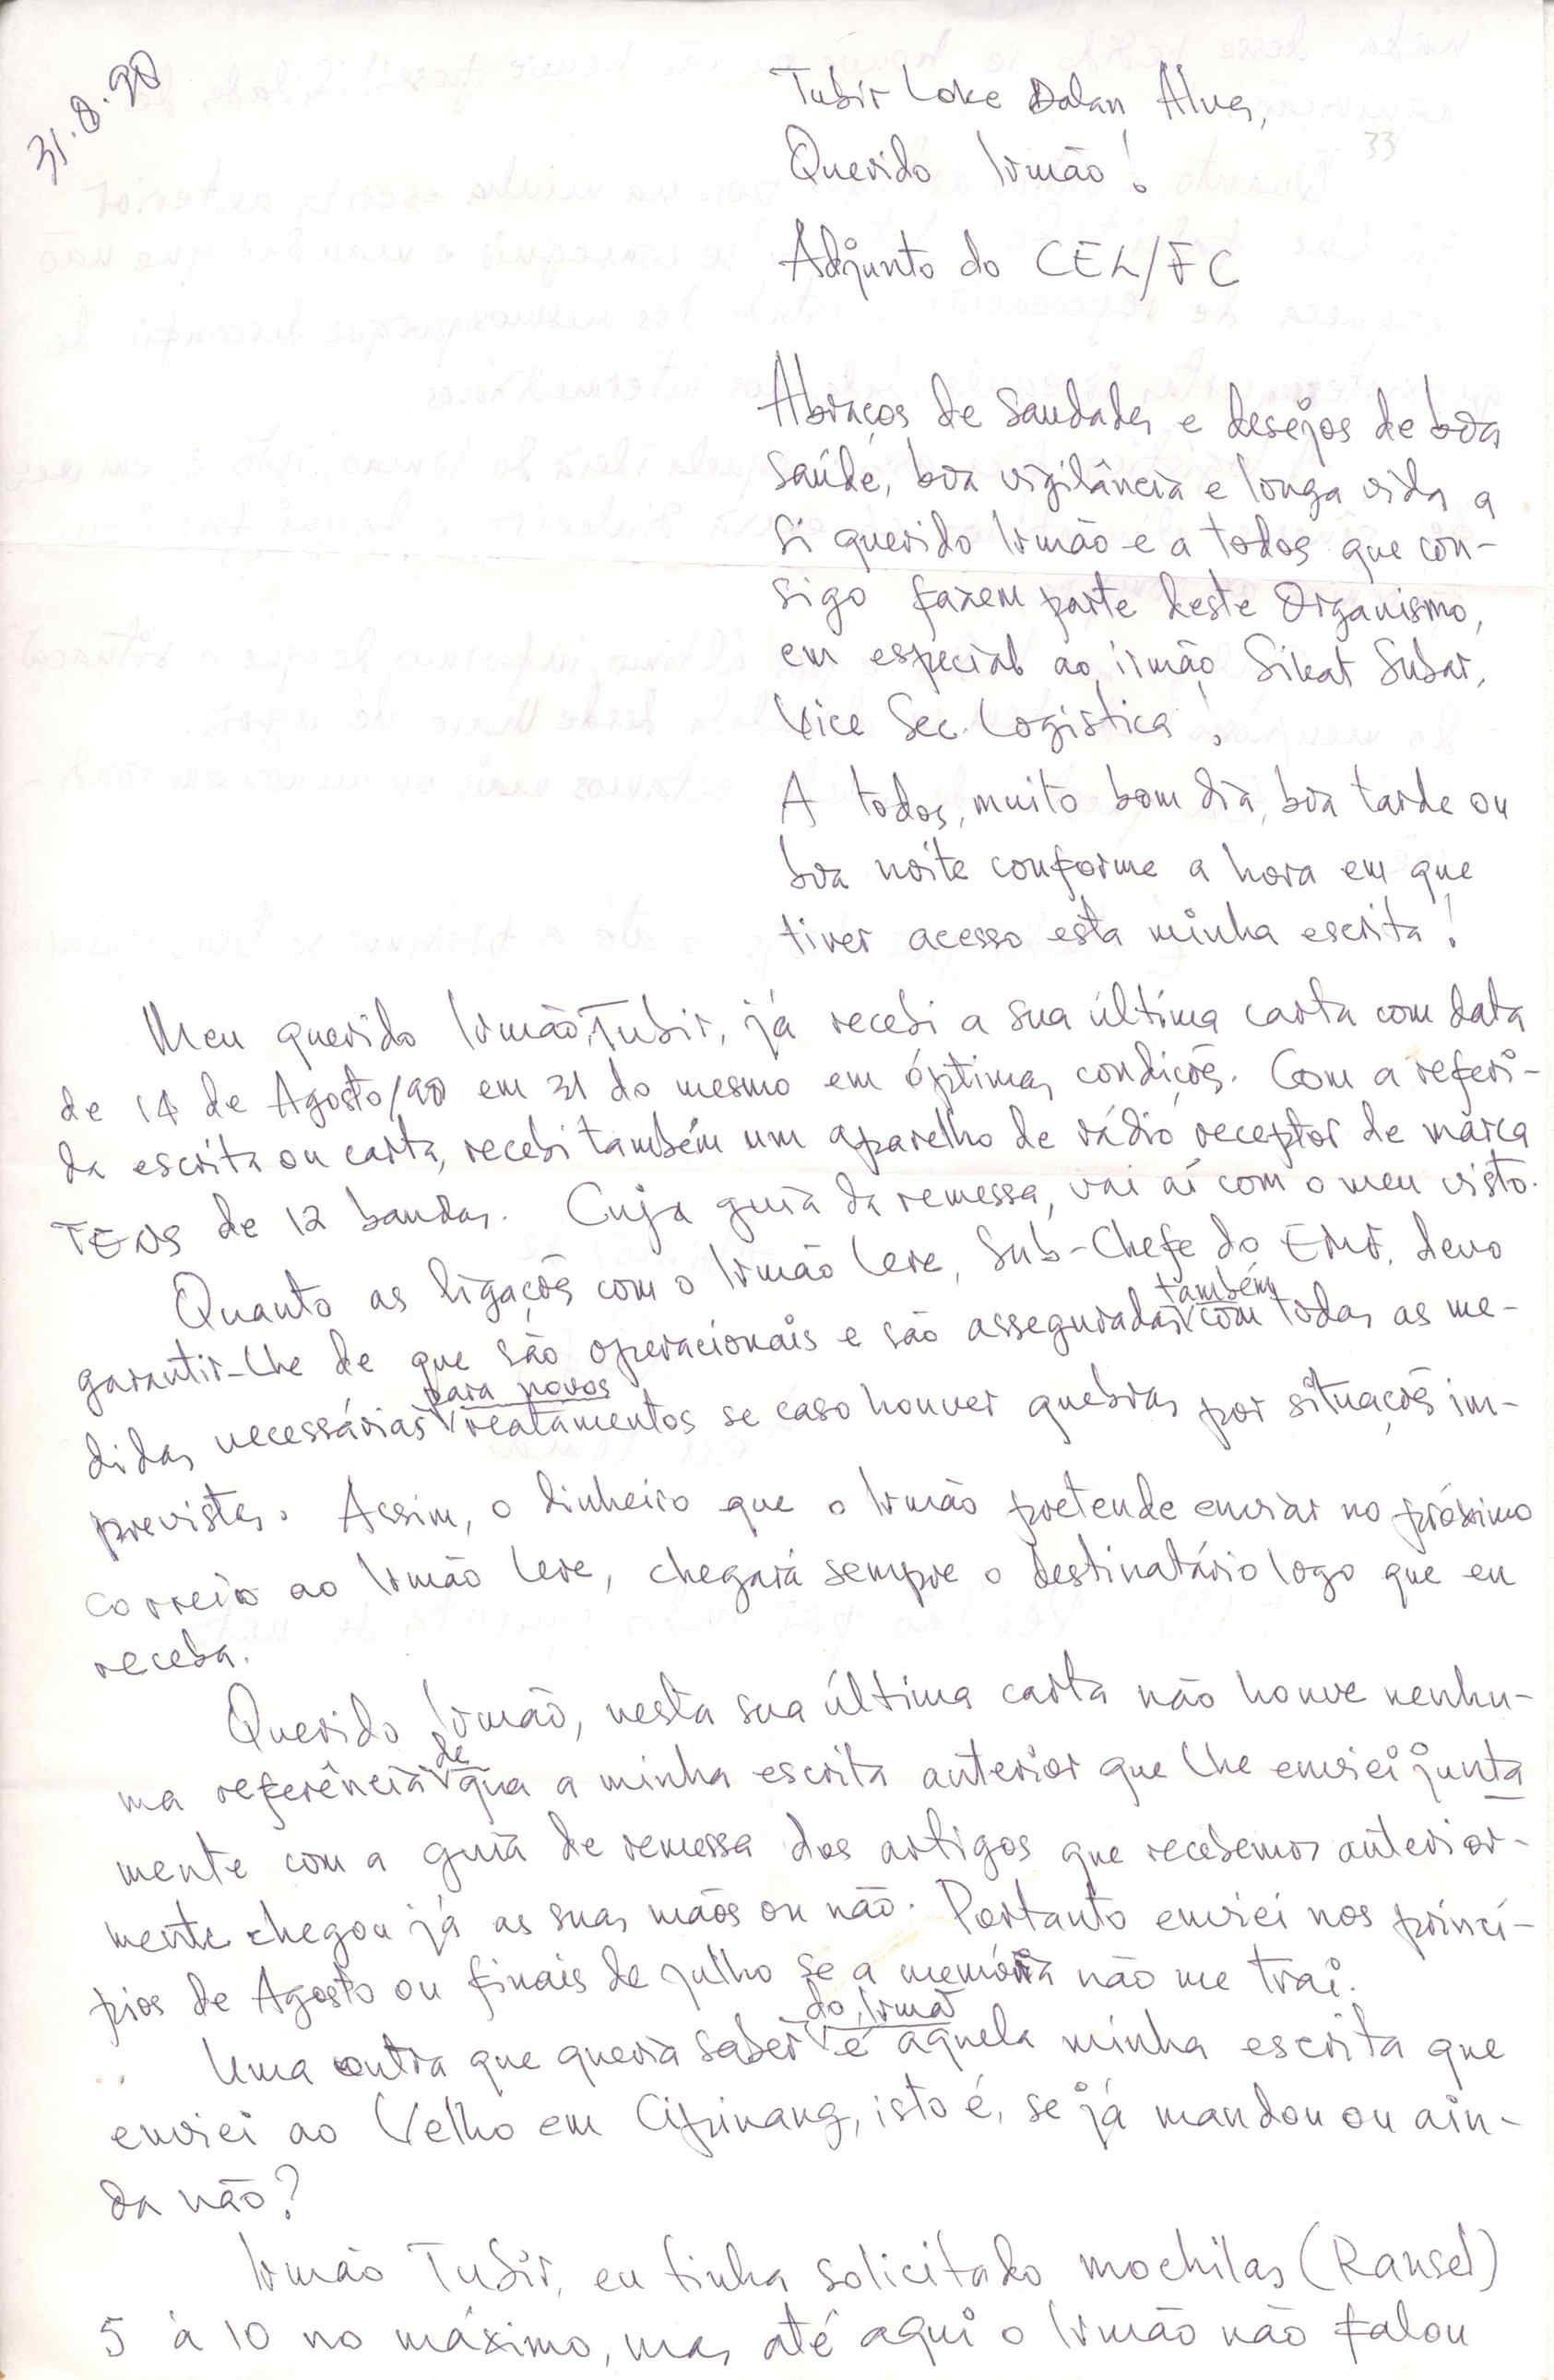 31.8.98
Tubir Loke Dalan Alves,
33
Querido Irmão!
Adjunto do CEL/FC
Abraços de saudades e desejos de boa
saúde, boa vigilância e longa vida a
si querido Irmão e a todos que con-
sigo fazem parte deste Organismo,
em especial ao irmão Sikat Subar,
Vice Sec. Logística!
A todos, muito bom dia, boa tarde ou
boa noite conforme a hora em que
tiver acesso esta minha escrita!
Meu querido Irmão, Tubir, já recebi a sua última carta com data
de 14 de Agosto/98 em 31 do mesmo em óptimas condições. Com a referi-
da escrita ou carta, recebi também um aparelho de rádio receptor de marca
TENS de 12 bandas. Cuja guia da remessa, vai aí com o meu visto.
Quanto as ligações com o Irmão Lere, Sub-Chefe do EMF. devo
garantir-lhe de que são operacionais e são asseguradas também com todas as me-
didas necessárias para novos reatamentos se caso houver quebras por situações im-
previstas. Assim, o dinheiro que o Irmão pretende enviar no próximo
correio ao Irmão Lere, chegará sempre o destinatário logo que eu
receba.
Querido Irmão, nesta sua última carta não houve nenhu-
ma referência de qua a minha escrita anterior que lhe enviei junta
mente com a guia de remessa dos artigos que recebemos anterior-
mente chegou já as suas mãos ou não. Portanto enviei nos princí-
pios de Agosto ou finais de julho se a memória não me trai.
Uma outra que queria saber do Irmão é aquela minha escrita que
enviei ao Velho em Cipinang, isto é, se já mandou ou ain-
da não?
Irmão Tubir, eu tinha solicitado mochilas (Ransel)
5 à 10 no máximo, mas até aqui o Irmão não falou